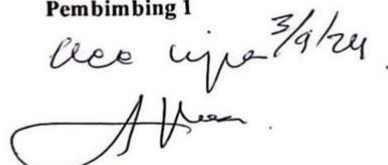 Pembimbing 1
acc ujian 3/9/24